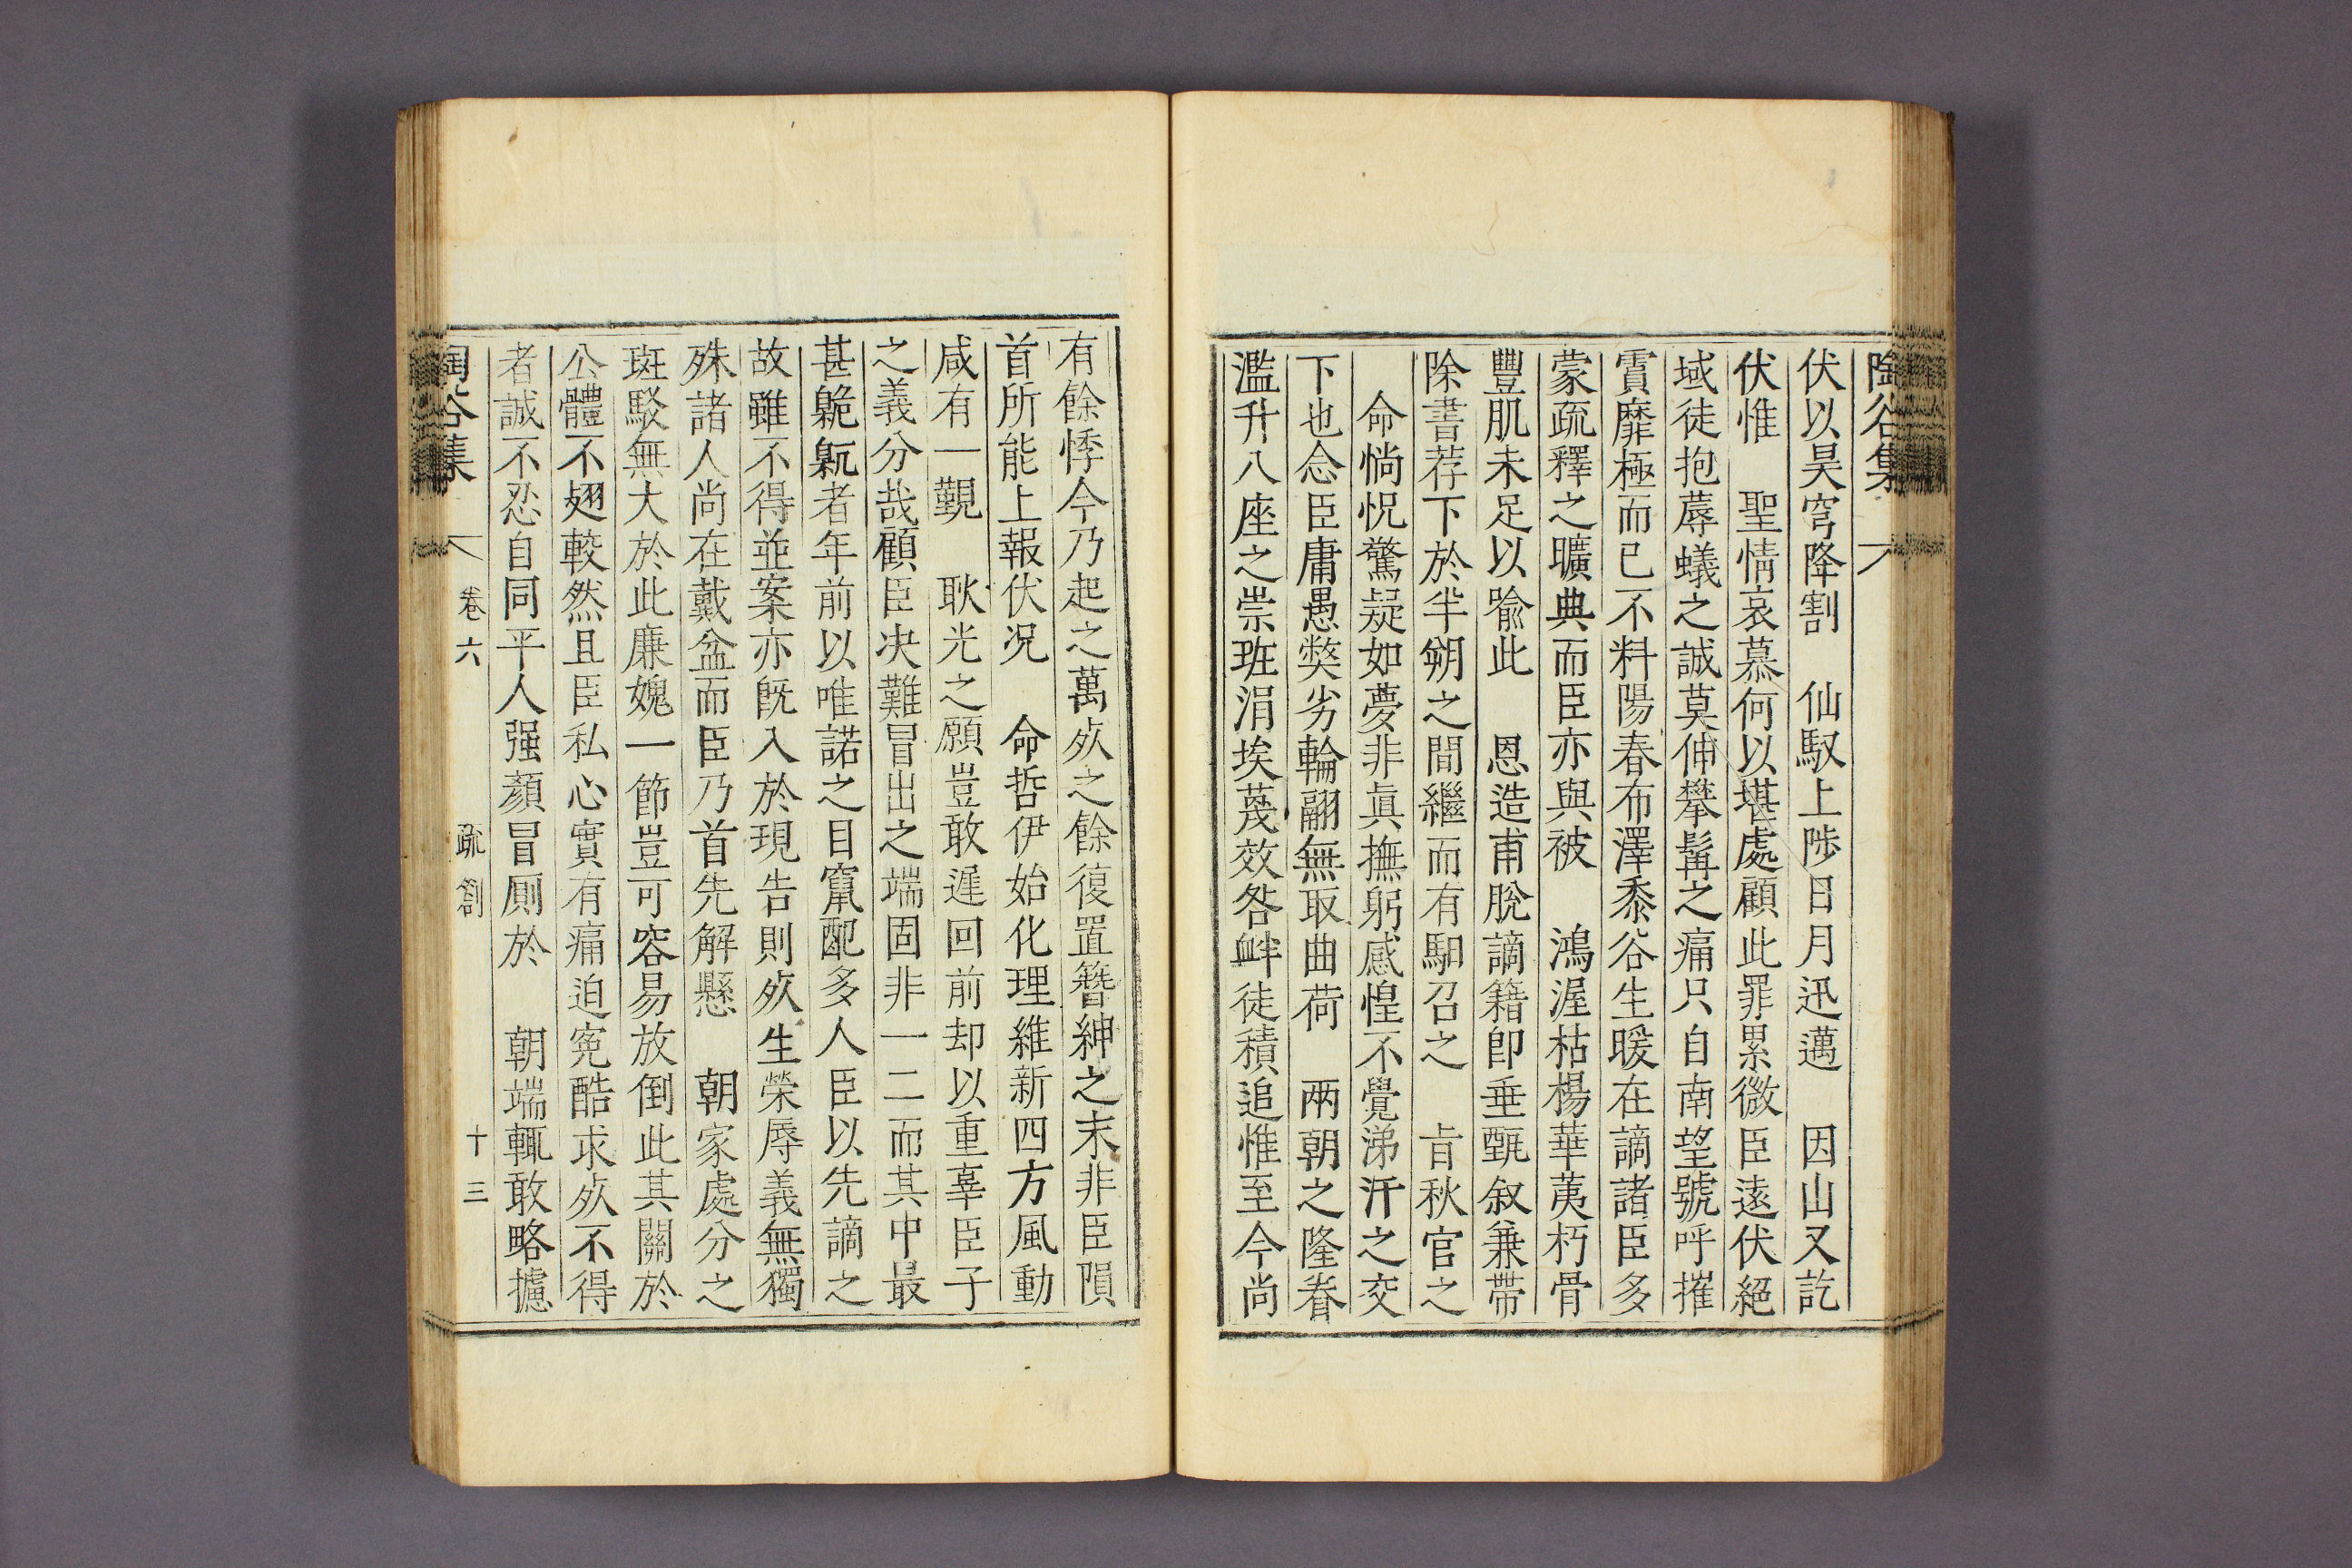 陶谷集
伏以昊穹降割　仙馭上陟日月迅邁　因山又訖
伏惟　聖情哀慕何以堪處顧此罪累微臣遠伏絕
域徒抱蓐蟻之誠莫伸攀髯之痛只自南望號呼摧
霣靡極而已不料陽春布澤黍谷生暖在謫諸臣多
蒙疏釋之曠典而臣亦與被　鴻渥枯楊華荑朽骨
豐肌未足以喩此　恩造甫脫謫籍卽垂甄叙兼帶
除書荐下於半朔之間繼而有馹召之　旨秋官之
命惝怳驚疑如夢非眞撫躬感惶不覺涕汗之交
下也念臣庸愚獘劣輪翮無取曲荷　兩朝之隆眷
濫升八座之崇班涓埃蔑效咎衅徒積追惟至今尚
有餘悸今乃起之萬死之餘復置簪紳之末非臣隕
首所能上報伏况　命哲伊始化理維新四方風動
咸有一覲　耿光之願豈敢遲回前却以重辜臣子
之義分哉顧臣决難冒出之端固非一二而其中最
甚臲卼者年前以唯諾之目竄配多人臣以先謫之
故雖不得並案亦旣入於現告則死生榮辱義無獨
殊諸人尚在戴盆而臣乃首先解懸　朝家處分之
斑駁無大於此廉媿一節豈可容易放倒此其關於
公體不翅較然且臣私心實有痛迫寃酷求死不得
者誠不忍自同平人强顏冒厠於　朝端輒敢略攄
陶谷集　卷六　疏劄　十三